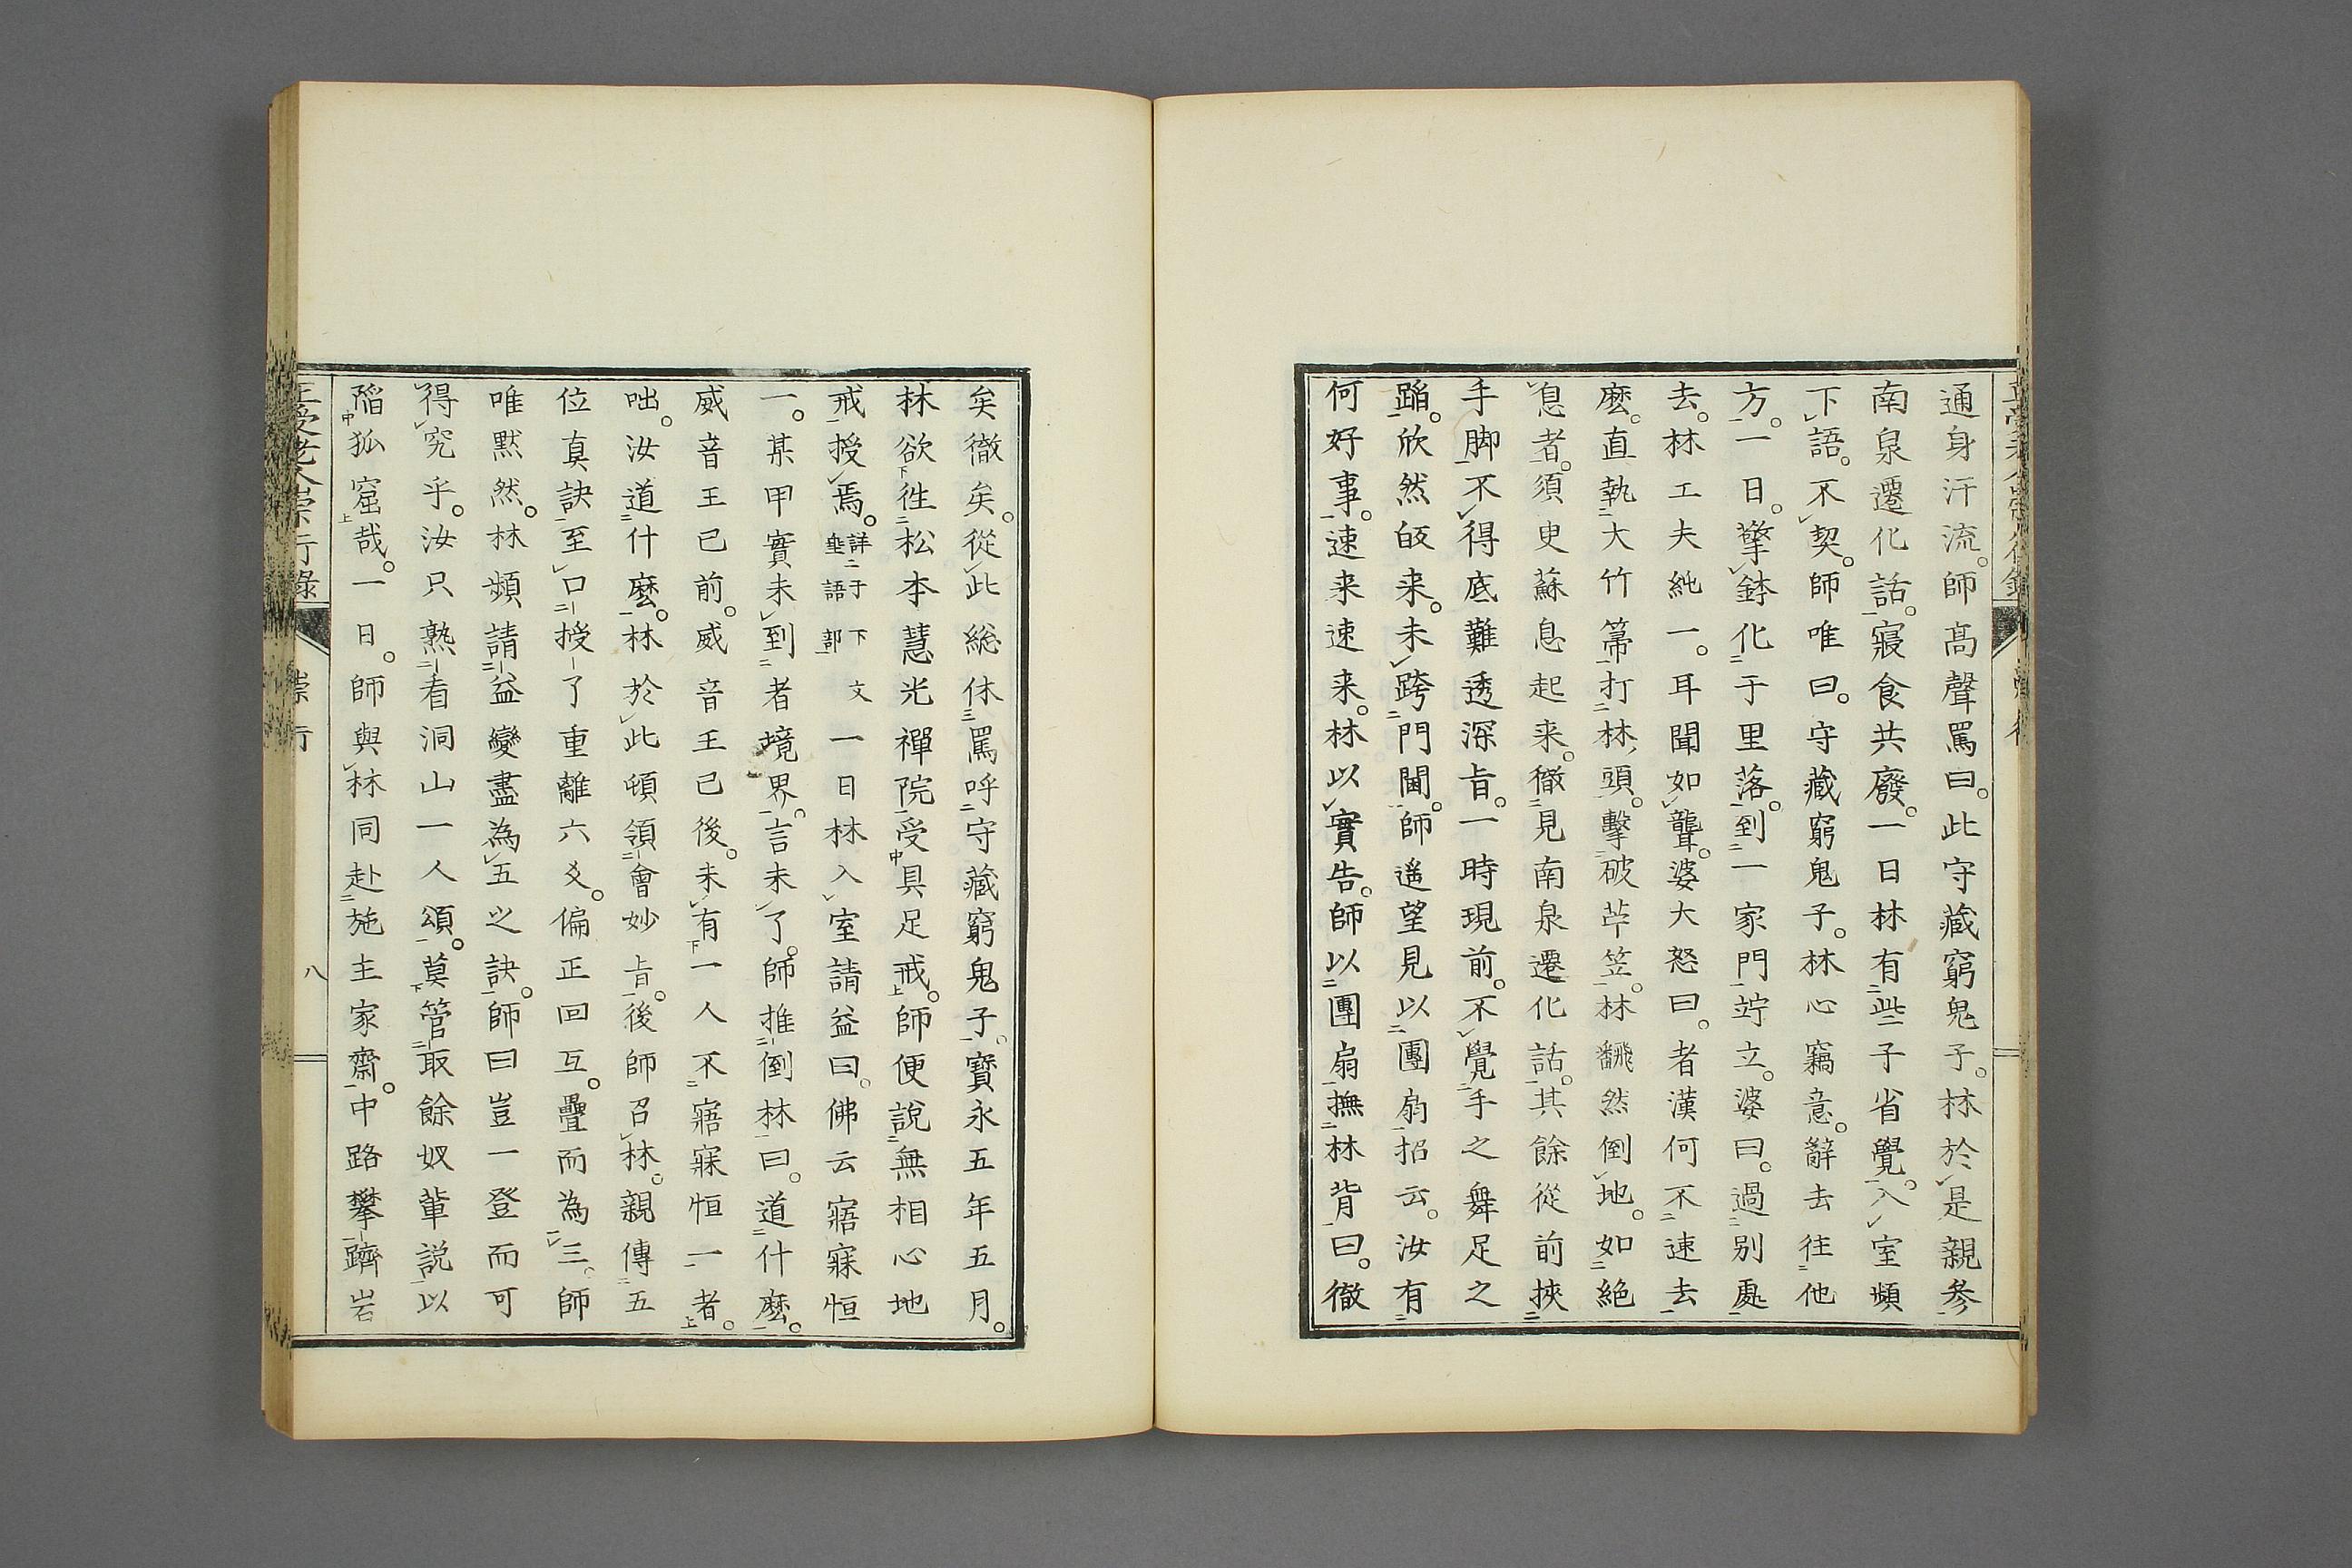 通身汗流。師高聲罵曰。此守藏窮鬼子。林於是親參
南泉遷化話。寢食共廢。一日林有些子省覺。入室頻
下語。不契。師唯曰。守藏窮鬼子。林心竊意。辭去往他
方。一日。擎鉢化于里落。到一家門竚立。婆曰。過別處
去。林工夫純一。耳聞如聾。婆大怒曰。者漢何不速去
麼。直執大竹箒打林頭。擊破苧笠。林飜然倒地。如絕
息者。須臾蘇息起来。徹見南泉遷化話。其餘從前挾
手脚不得底難透深旨。一時現前。不覺手之舞足之
蹈。欣然皈来。未跨門閫。師遙望見以團扇招云。汝有
何好事。速来速来。林以實告。師以團扇撫林背曰。徹
矣徹矣。從此總休罵呼守藏窮鬼子。寶永五年五月。
林欲往松本慧光禪院受具足戒。師便說無相心地
戒授焉。詳于下文垂語部 一日林入室請益曰。佛云寤寐恒
一。某甲實未到者境界。言未了。師推倒林曰。道什麼。
威音王已前。威音王已後。未有一人不寤寐恒一者。
咄。汝道什麼。林於此頓領會妙旨。後師召林。親傳五
位真訣至口授了重離六爻。偏正回互。疊而為三。師
唯默然。林頻請益變盡為五之訣。師曰豈一登而可
得究乎。汝只熟看洞山一人頌。莫管取餘奴輩說以
陷狐窟哉。一日。師與林同赴施主家齋。中路攀躋岩
正受老人崇行錄
崇行
八